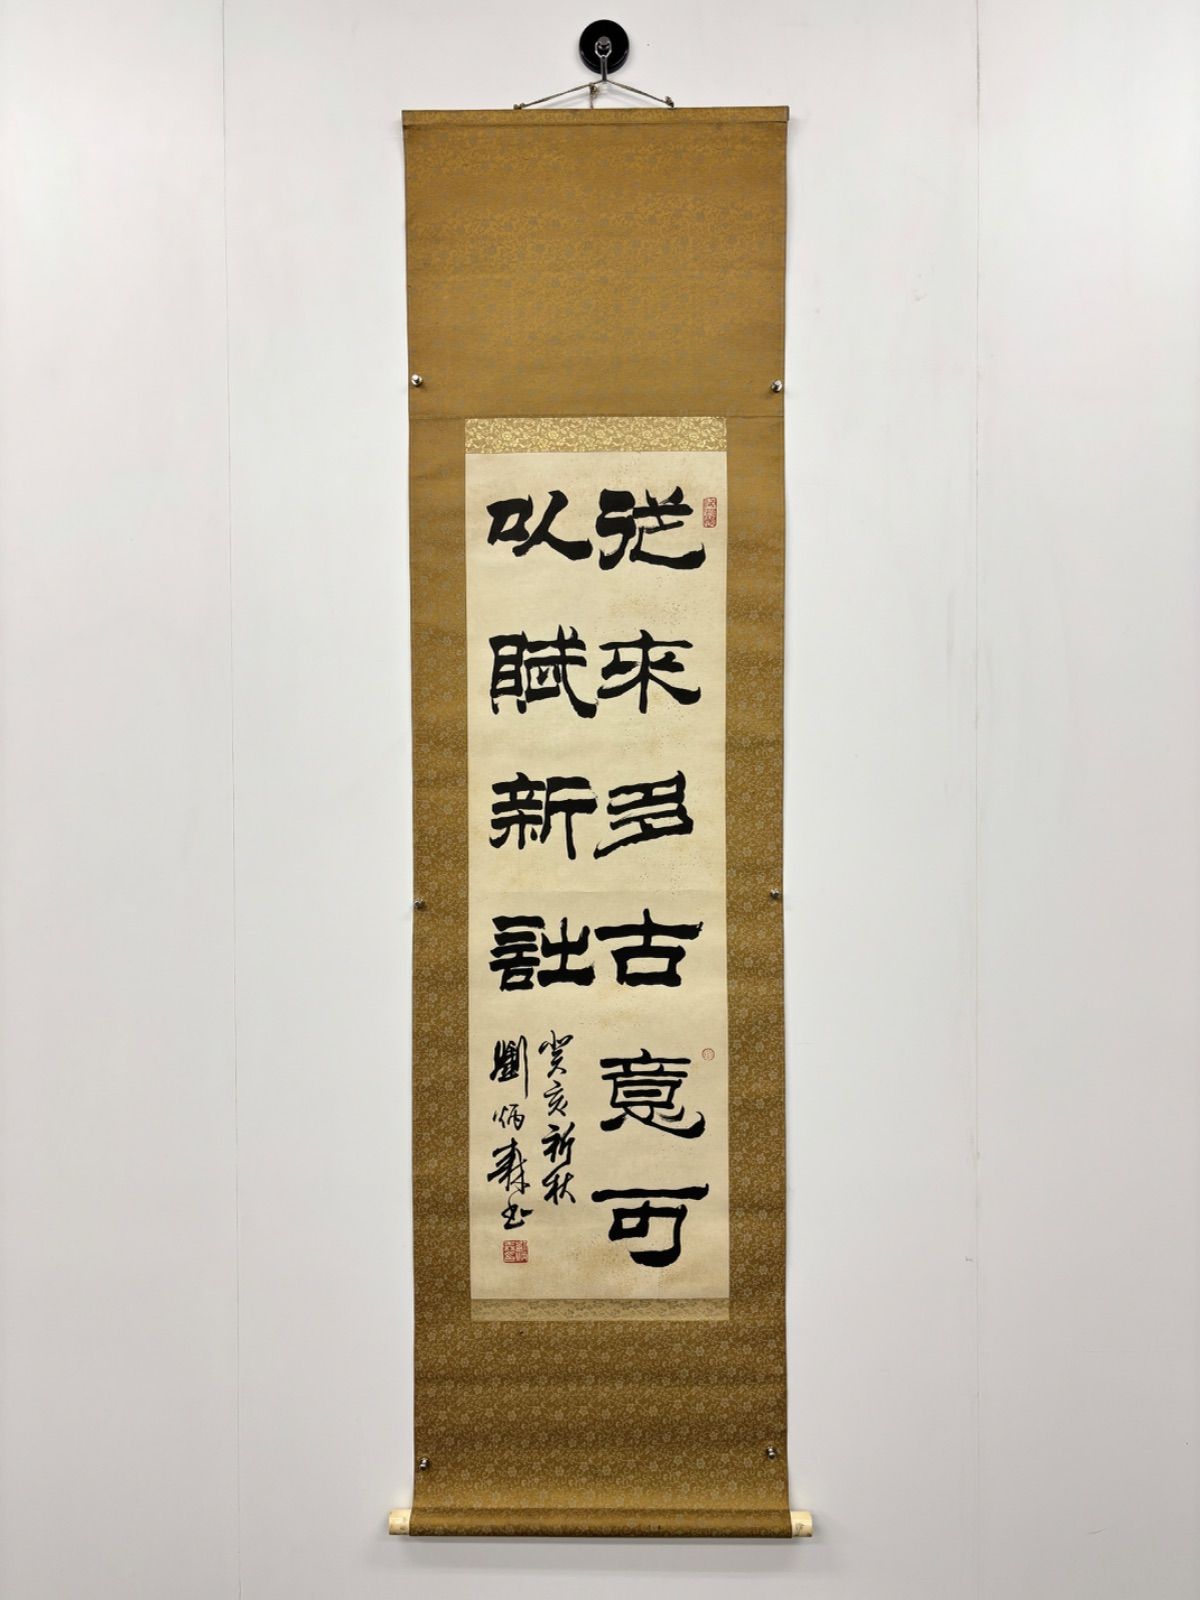 從來多古意可
以賦新詩
癸亥新秋
劉炳森書